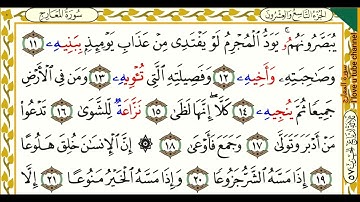 الجزء التاسع والعشرون
سورة المعارج
يُبَصَّرُونَهُمْ ۚ يَوَدُّ الْمُجْرِمُ لَوْ يَفْتَدِى مِنْ عَذَابِ يَوْمِئِذٍۭ بِبَنِيهِ ١١
وَصَٰحِبَتِهِۦ وَأَخِيهِ ١٢ وَفَصِيلَتِهِ الَّتِى تُـْٔوِيهِ ١٣ وَمَن فِى الْأَرْضِ
جَمِيعًا ثُمَّ يُنجِيهِ ١٤ كَلَّآ ۖ إِنَّهَا لَظَىٰ ١٥ نَزَّاعَةً لِّلشَّوَىٰ ١٦ تَدْعُوا۟
مَنْ أَدْبَرَ وَتَوَلَّىٰ ١٧ وَجَمَعَ فَأَوْعَىٰٓ ١٨ ۞ إِنَّ الْإِنسَٰنَ خُلِقَ هَلُوعًا
١٩ إِذَا مَسَّهُ الشَّرُّ جَزُوعًا ٢٠ وَإِذَا مَسَّهُ الْخَيْرُ مَنُوعًا ٢١ إِلَّا
سورة المعارج
love u tube channel